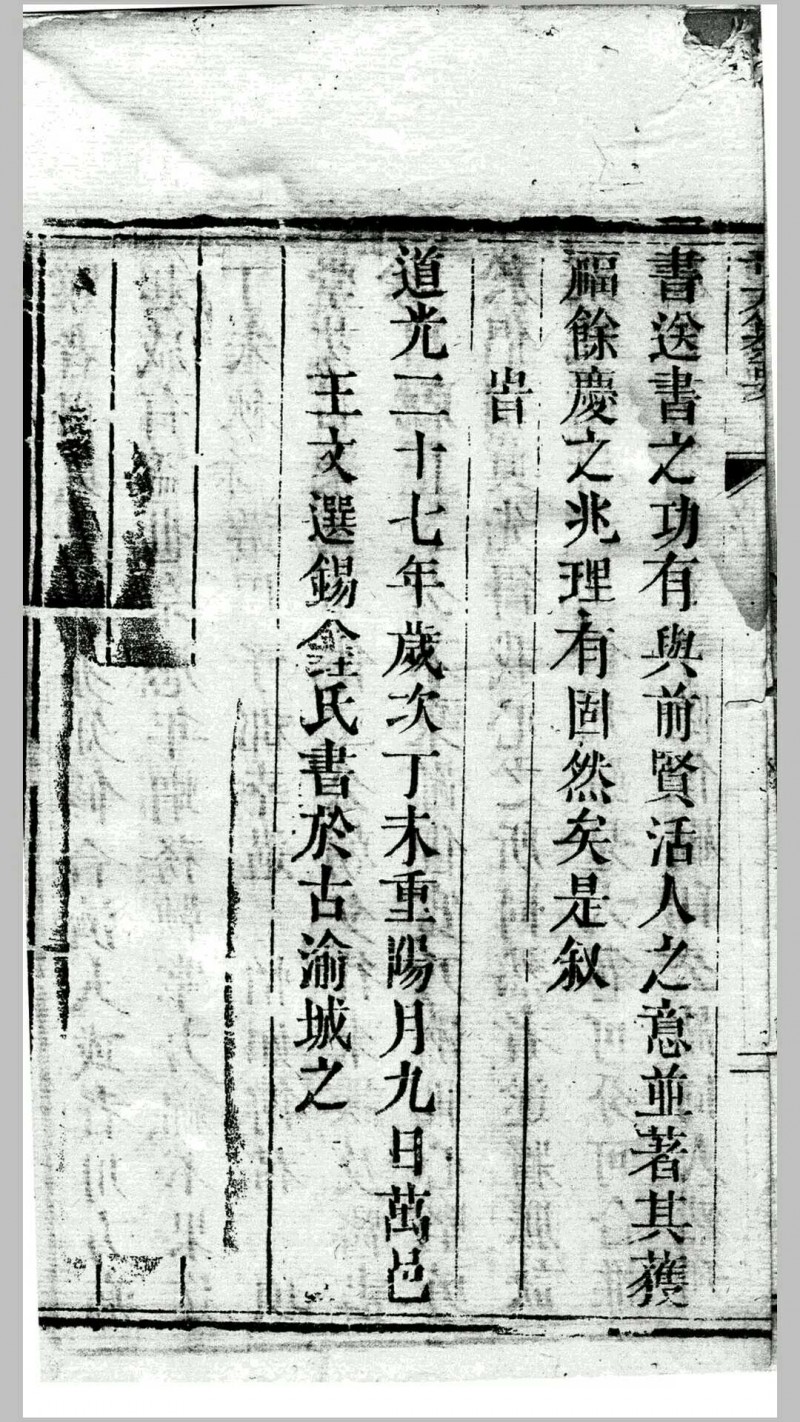 書送書之功有與前賢活人之意並著其獲
福餘慶之兆理有固然矣是叙
旹
道光二十七年歲次丁未重陽月九日萬邑
王文選錫鑫氏書於古渝城之